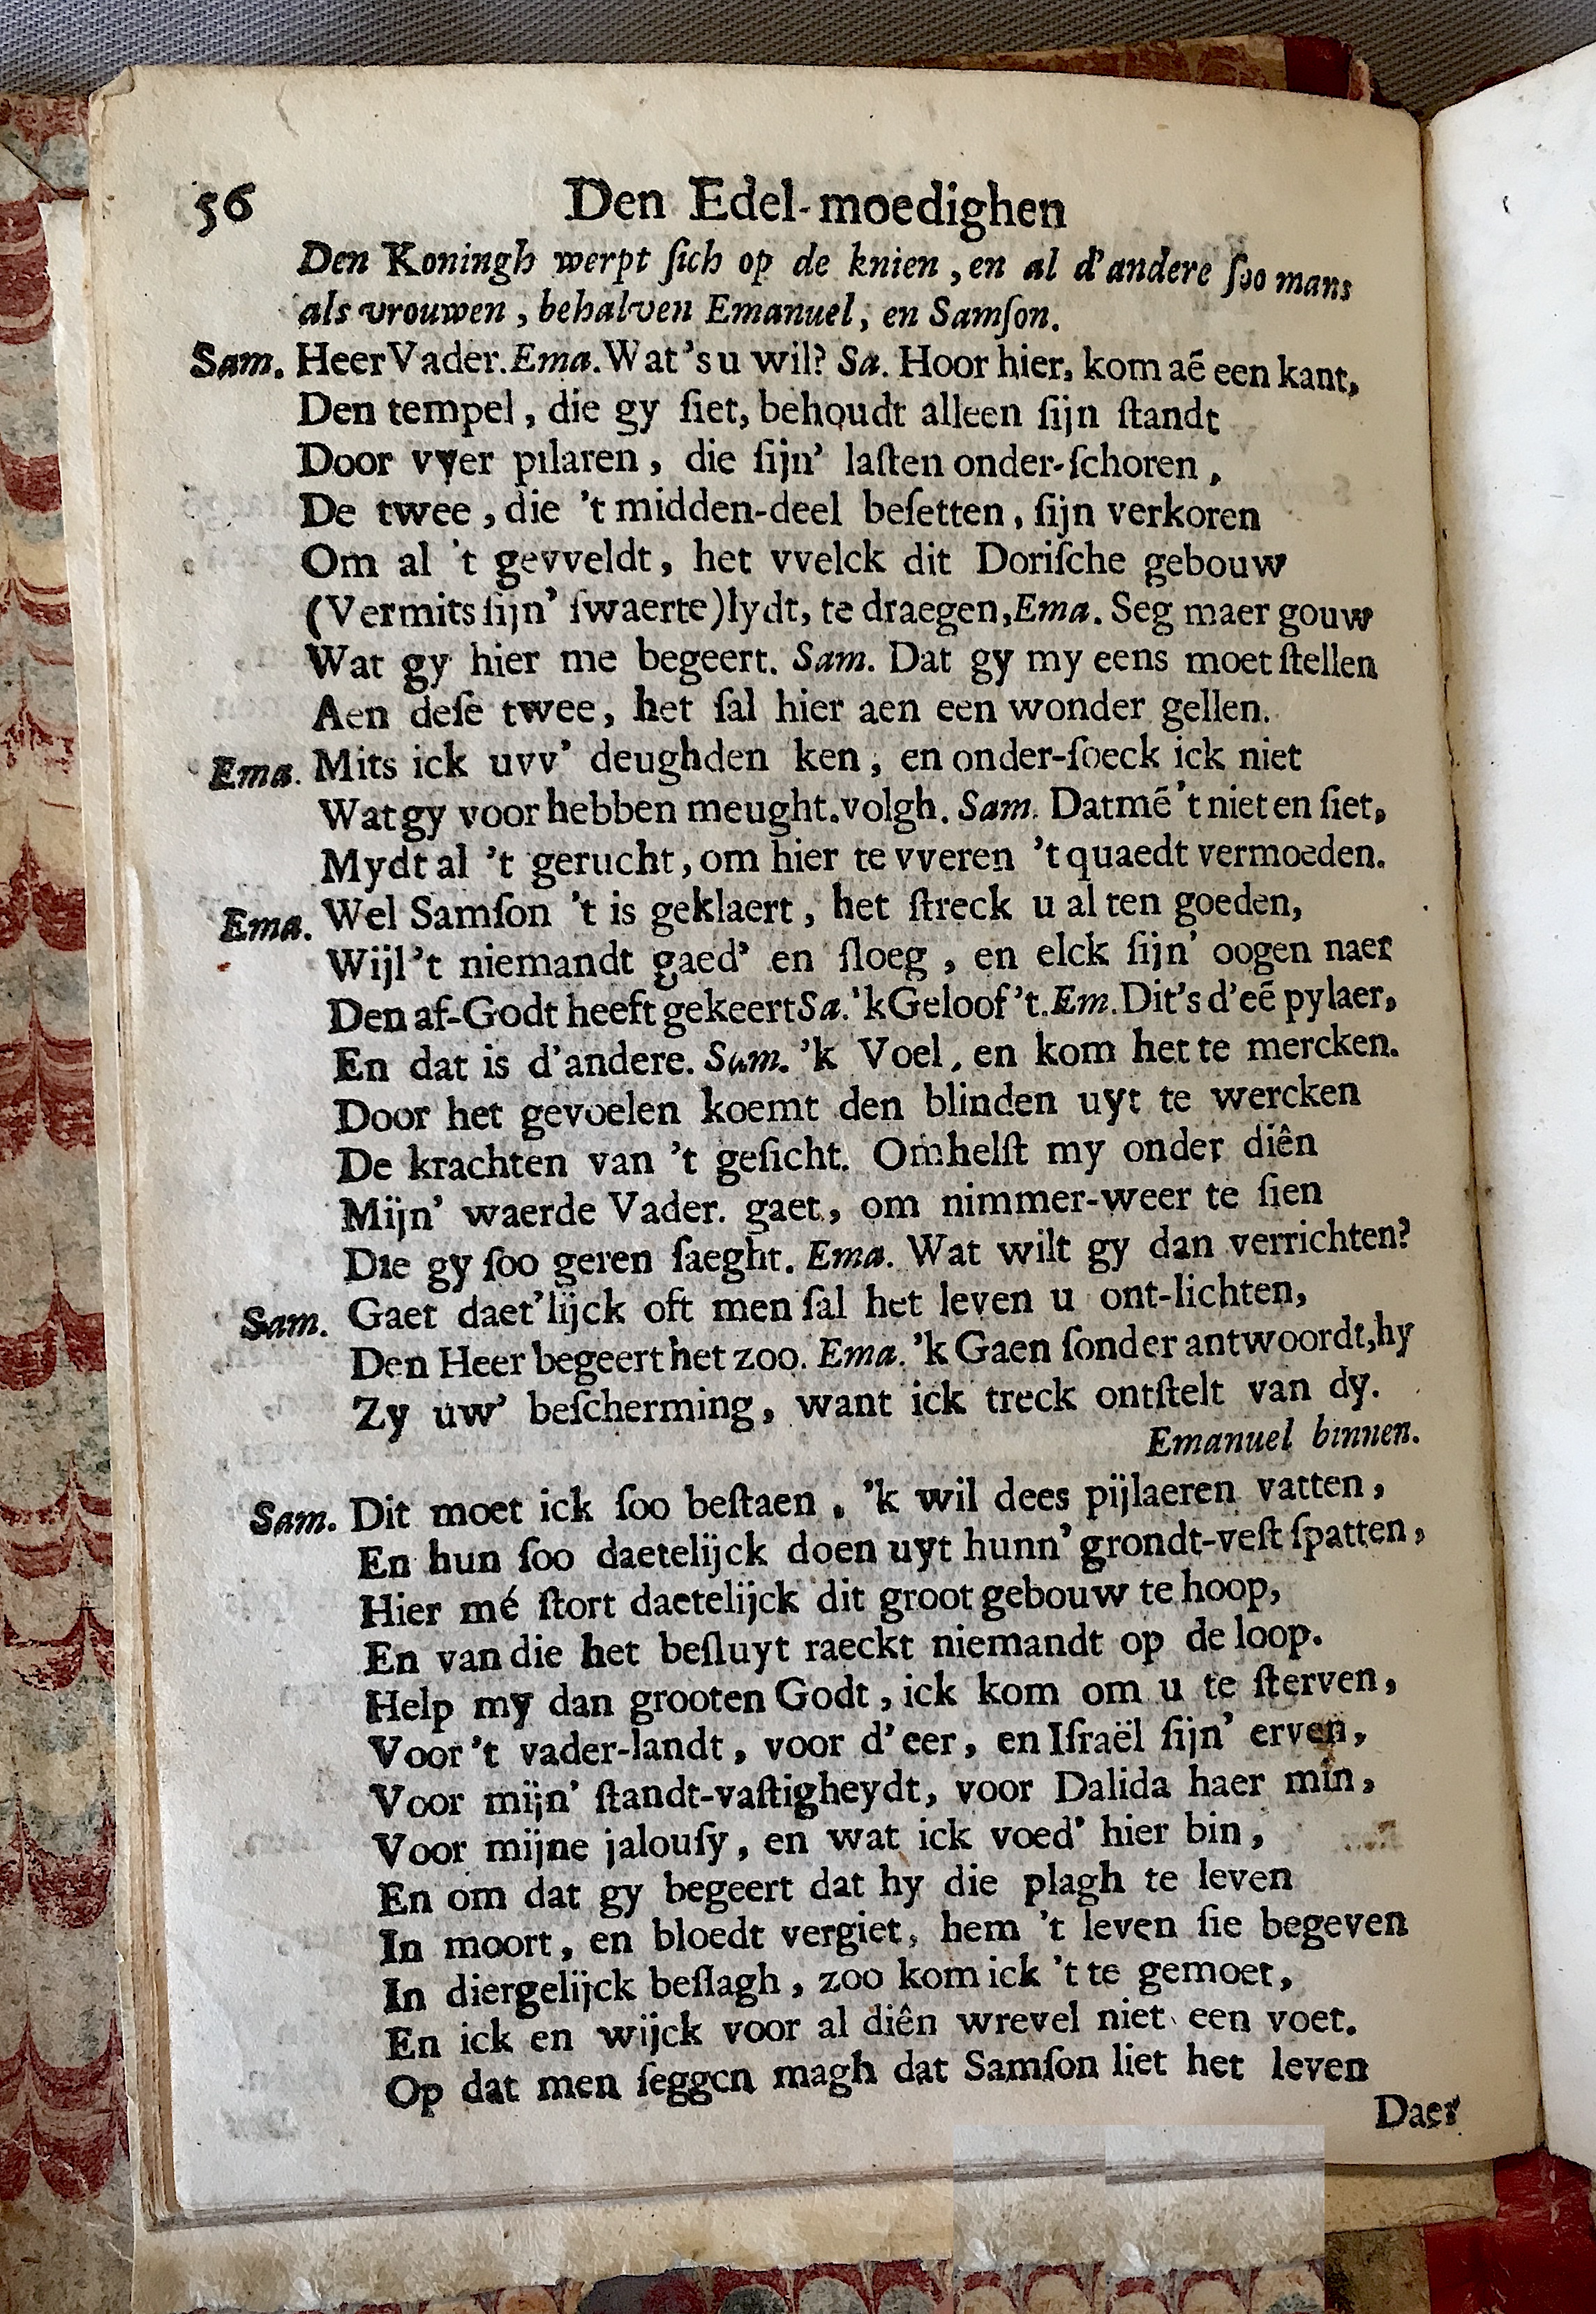 56 Den Edel-moedighen
Den Koningh werpt ſich op de knien, en al d'andere ſoo mans
als vrouwen, behalven Emanuel, en Samſon.
Sam. Heer Vader. Ema. Wat's u wil? Sa. Hoor hier, kom aẽ een kant,
Den tempel, die gy ſiet, behoudt alleen ſijn ſtandt
Door vyer pilaren, die ſijn' laſten onder-ſchoren,
De twee, die 't midden-deel beſetten, ſijn verkoren
Om al 't gevveldt, het vvelck dit Doriſche gebouw
(Vermits ſijn' ſwaerte) lydt, te draegen, Ema. Seg maer gouw
Wat gy hier me begeert. Sam. Dat gy my eens moet ſtellen
Aen deſe twee, het ſal hier aen een wonder gellen.
Ema. Mits ick uvv' deughden ken, en onder-ſoeck ick niet
Wat gy voor hebben meught. volgh. Sam. Datmẽ 't niet en ſiet,
Mydt al 't gerucht, om hier te vveren 't quaedt vermoeden.
Ema. Wel Samſon 't is geklaert, het ſtreck u al ten goeden,
Wijl 't niemandt gaed' en ſloeg, en elck ſijn' oogen naer
Den af-Godt heeft gekeert Sa. 'k Geloof 't. Em. Dit's d'eẽ pylaer,
En dat is d'andere. Sam. 'k Voel, en kom het te mercken.
Door het gevoelen koemt den blinden uyt te wercken
De krachten van 't geſicht. Omhelſt my onder diên
Mijn' waerde Vader. gaet, om nimmer-weer te ſien
Die gy ſoo geren ſaeght. Ema. Wat wilt gy dan verrichten?
Sam. Gaet daet'lijck oft men ſal het leven u ont-lichten,
Den Heer begeert het zoo. Ema. 'k Gaen ſonder antwoordt, hy
Zy uw' beſcherming, want ick treck ontſtelt van dy.
Emanuel binnen.
Sam. Dit moet ick ſoo beſtaen, 'k wil dees pijlaeren vatten,
En hun ſoo daetelijck doen uyt hunn' grondt-veſt ſpatten,
Hier mé ſtort daetelijck dit groot gebouw te hoop,
En van die het beſluyt raeckt niemandt op de loop.
Help my dan grooten Godt, ick kom om u te ſterven,
Voor 't vader-landt, voor d'eer, en Iſraël ſijn' erven,
Voor mijn' ſtandt-vaſtigheydt, voor Dalida haer min,
Voor mijne jalouſy, en wat ick voed' hier bin,
En om dat gy begeert dat hy die plagh te leven
In moort, en bloedt vergiet, hem 't leven ſie begeven
In diergelijck beſlagh, zoo kom ick 't te gemoet,
En ick en wijck voor al diên wrevel niet een voet.
Op dat men ſeggen magh dat Samſon liet het leven
Daer